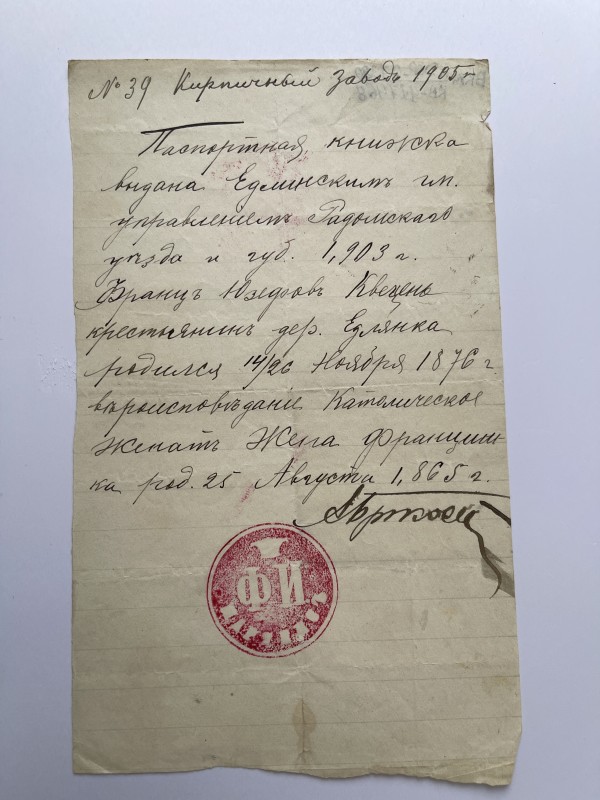 № 39 Кирпичный Заводъ 1905 г
Паспортная книжка
выдана Едлинскимъ гм.
управлениемъ Радомскаго
уѣзда и губ. 1,903 г.
Францъ Юзефовъ Квецень
крестьянинъ дер. Едлянка
родился 14/26 Ноября 1876 г.
вѣроисповѣдание Католическое
женатъ Жена Францишк
ка род. 25 Августа 1,865 г.
ФИ